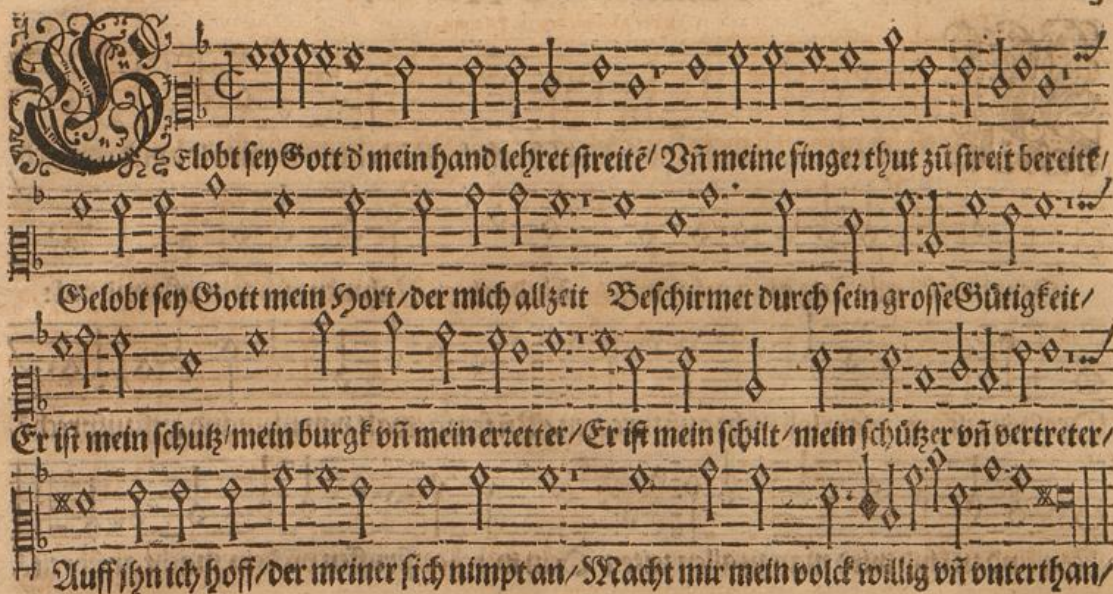 GElobt sey Gott d' mein hand lehret streitē/ Vñ meine finger thut zů streit bereitē/
Gelobt sey Gott mein Hort/der mich allzeit Beschirmet durch sein grosse Gütigkeit/
Er ist mein schutz/mein burgk vñ mein erretter/Er ist mein schilt/mein schützer vñ vertreter/
Auff jhn ich hoff/der meiner sich nimpt an/Macht mir mein volck willig vñ vnterthan/